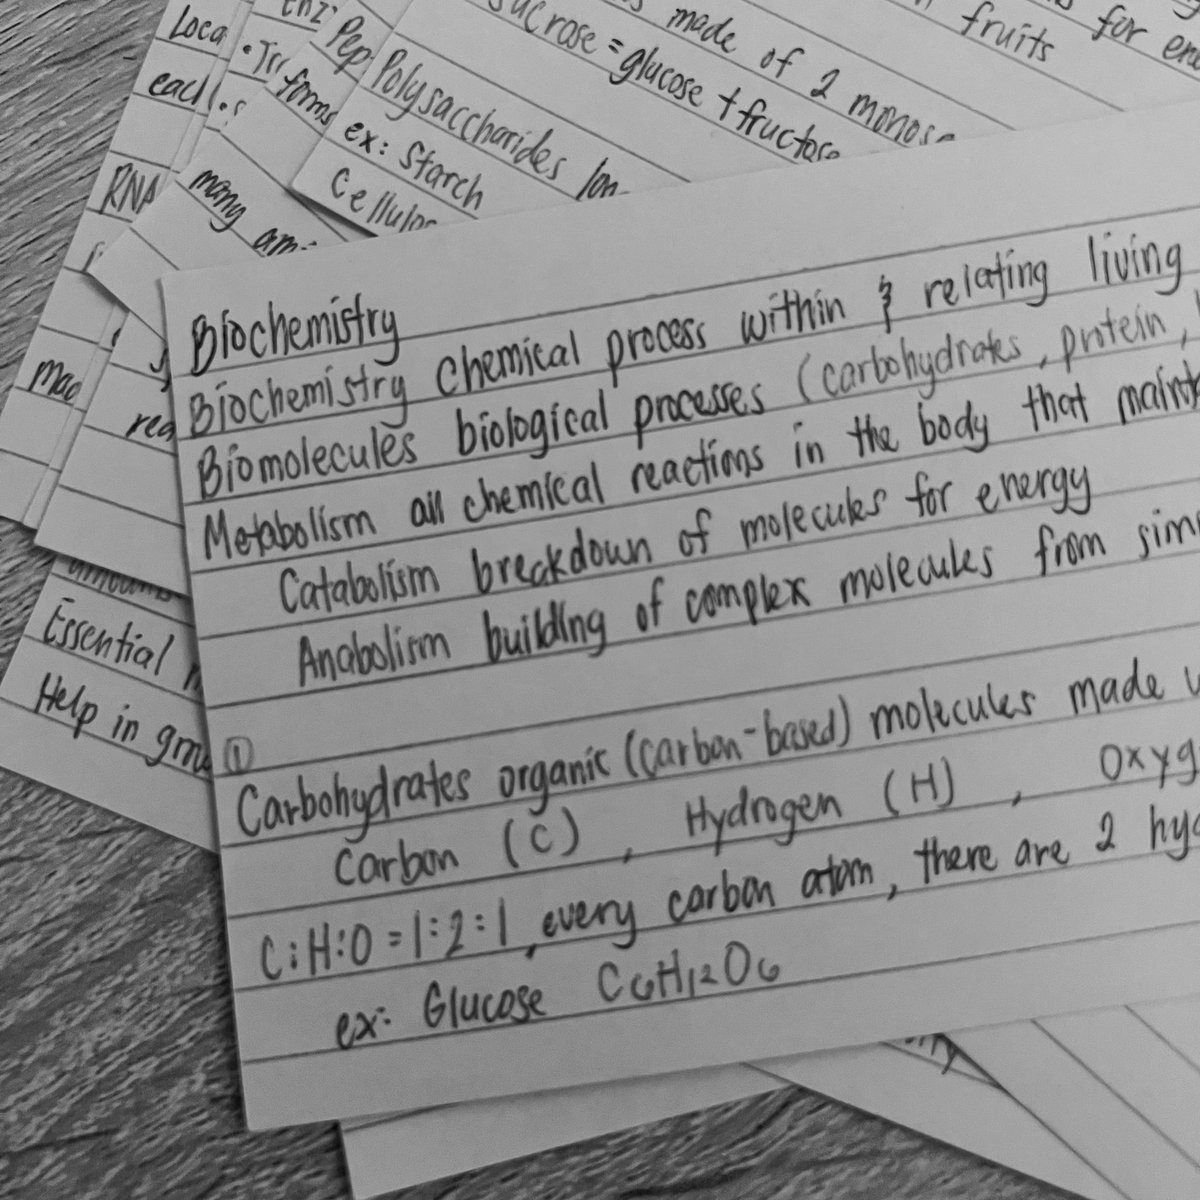 Loca
each
RNA
mac
enz
many
forms
Pep
Polysaccharides
ex: starch
sucrose = glucose + fructose
made of 2
fruits
for
rea
Essential
Help in
Biochemistry
Biochemistry chemical process within & relating living
Biomolecules biological processes (carbohydrates, protein,
Metabolism all chemical reactions in the body that
Catabolism breakdown of molecules for energy
Anabolism building of complex molecules from
①
Carbohydrates organic (carbon-based) molecules made
Carbon (C), Hydrogen (H), Oxyg
C:H:O = 1:2:1, every carbon atom, there are 2
ex: Glucose C6H12O6